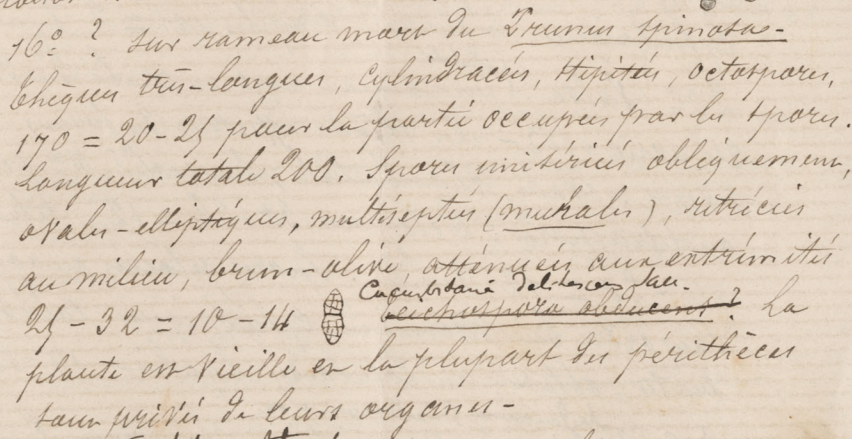 16º ? sur rameau mort du Prunus spinosa-
Thèques très-longues, cylindracées, stipitées, octospores,
170 = 20-25 pour la partie occupées par les spores.
Longueur totale 200. Spores unisériées obliquement,
ovales-elliptiques, multiseptées (murales), rétrécies
au milieu, brun-olivé, atténuées aux extrémités
Cucurbitaria delitescens Sacc.
25-32 = 10-14 Teichospora obducens ? La
plante est vieille et la plupart des périthèces
sont privés de leurs organes-